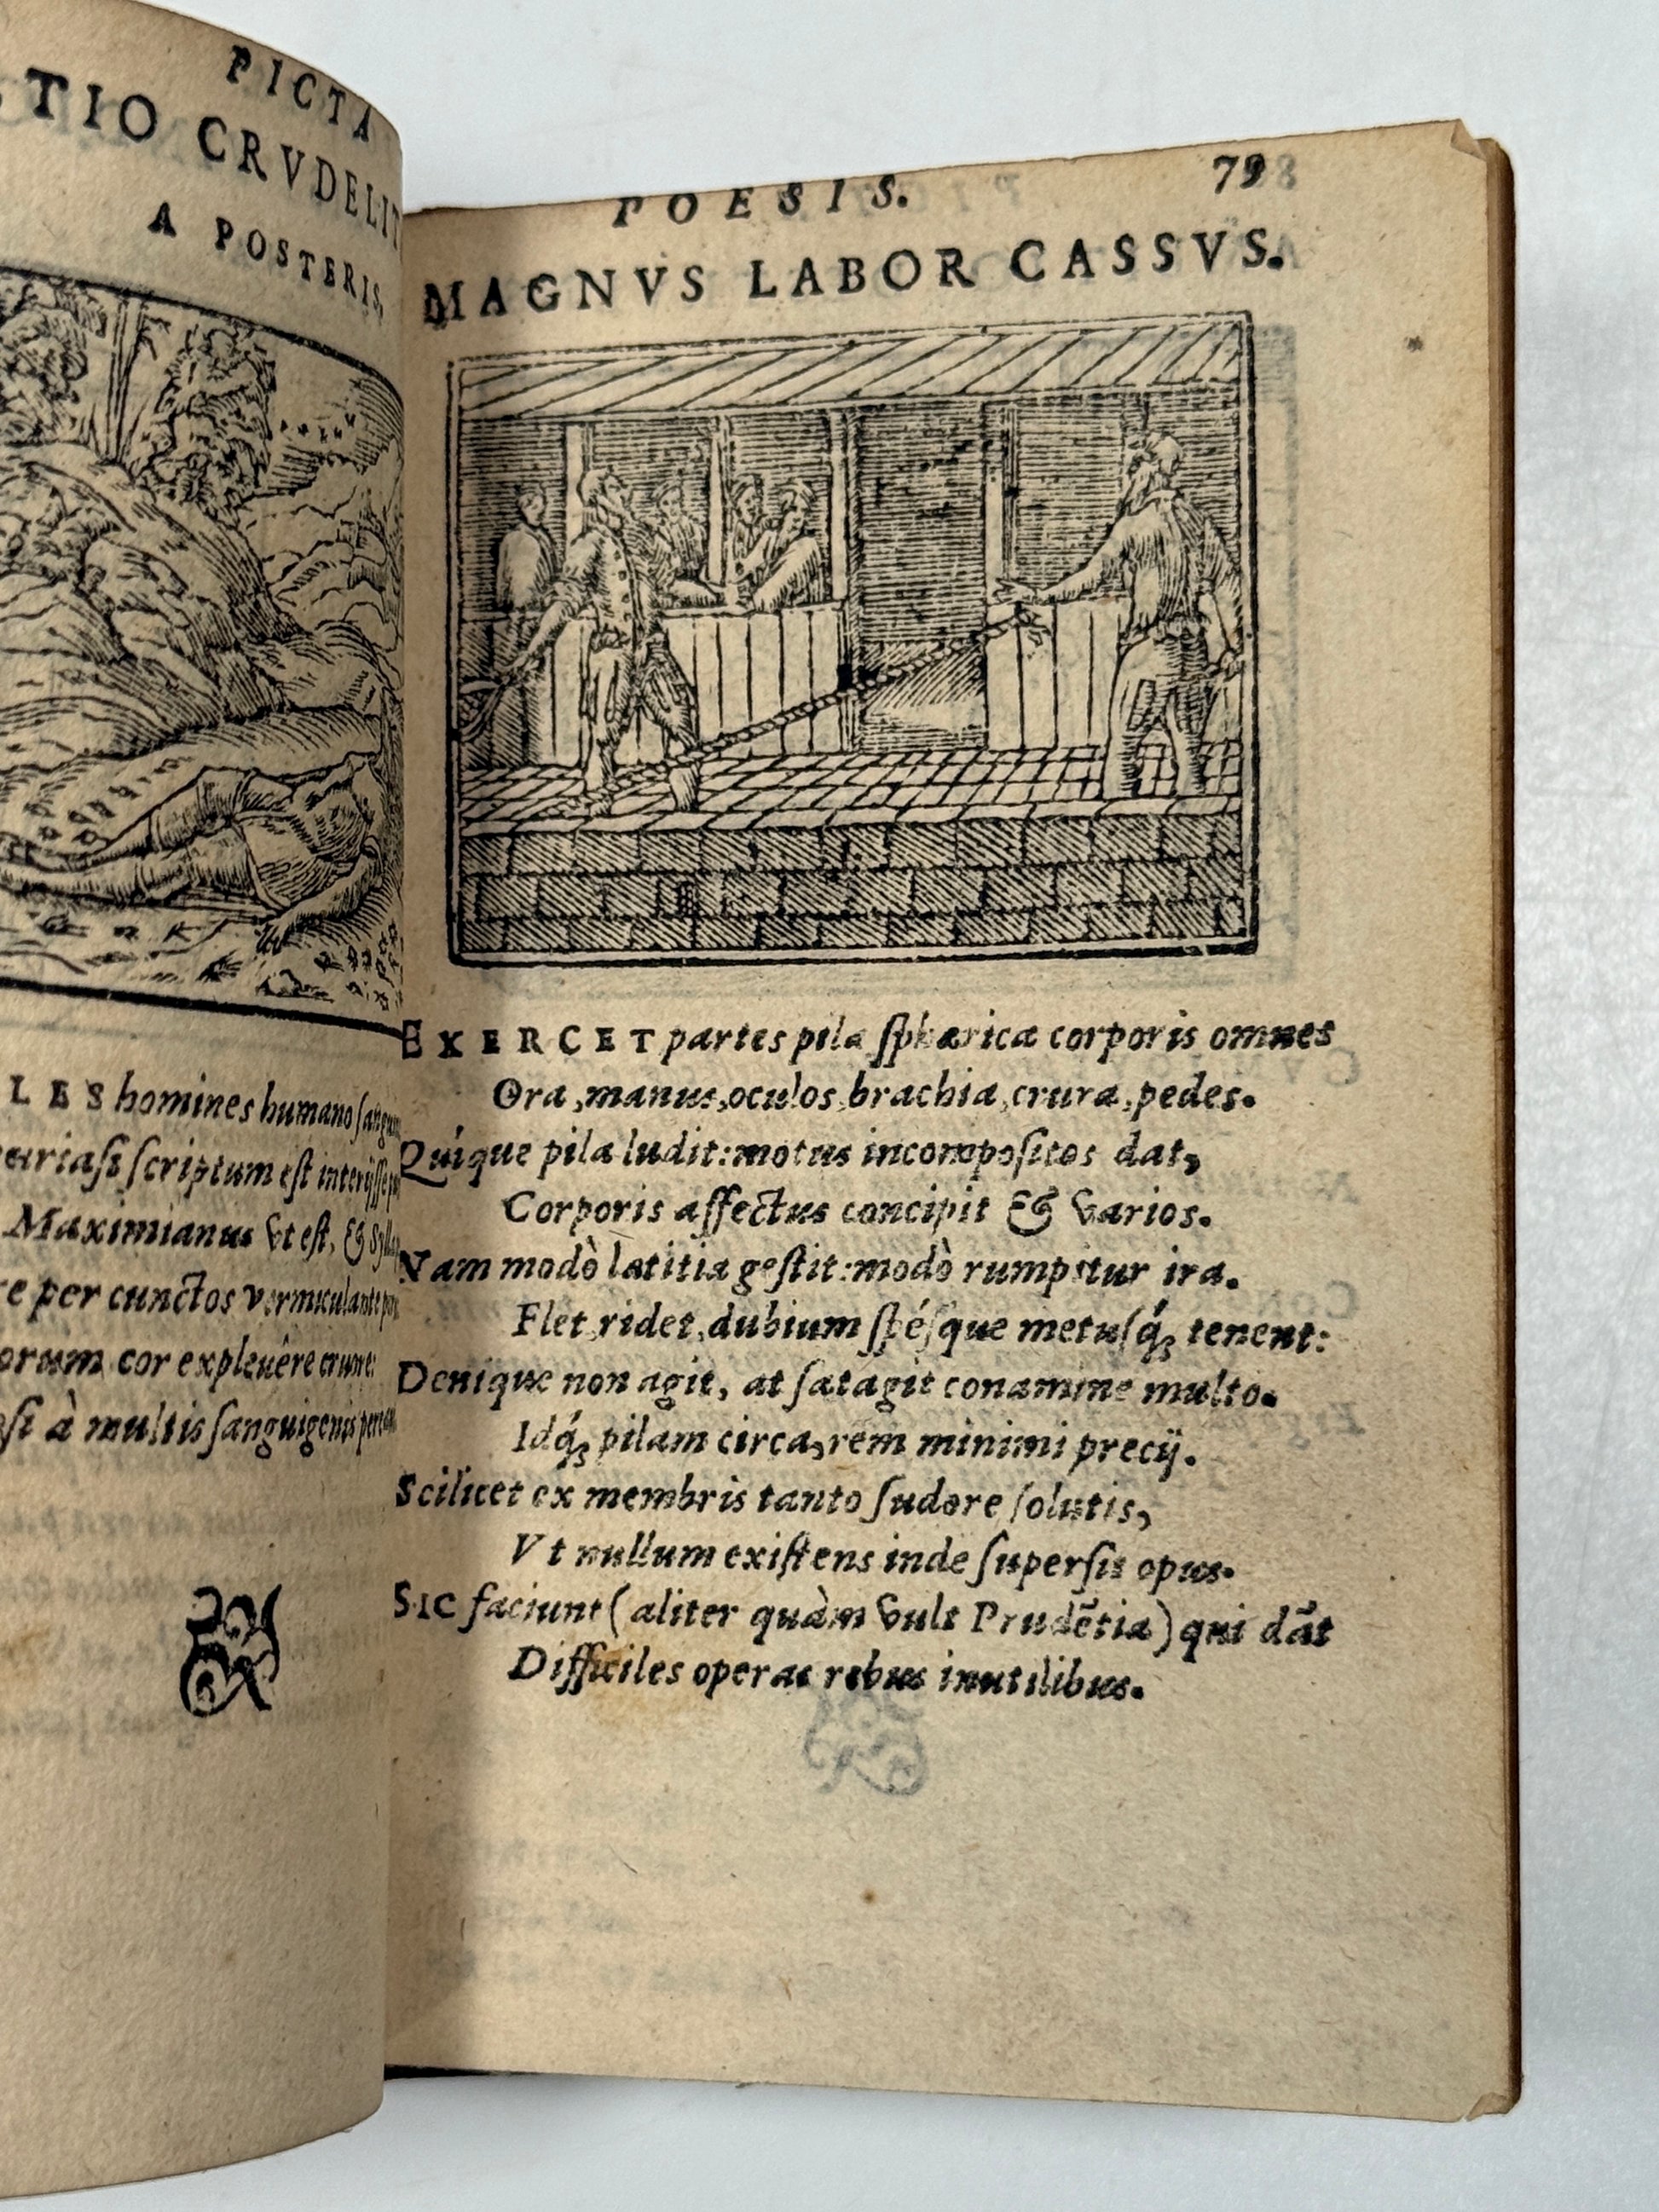 PICTA
TIO CRVDELIT
A POSTERIS,
LES homines humano
scriptum est
Maximianus vt est, &
per cunctos
cor expleuêre
à multis
POESIS. 79
MAGNVS LABOR CASSVS.
EXERCET partes pila sphæricæ corporis omnes
Ora, manus, oculos, brachia, crura, pedes.
Quíque pila ludit: motus incompositos dat,
Corporis affectus concipit & varios.
Nam modò lætitia gestit: modò rumpitur ira.
Flet, ridet, dubium spésque metusq́; tenent:
Denique non agit, at satagit conamine multo.
Idq́; pilam circa, rem minimi precij.
Scilicet ex membris tanto sudore solutis,
Vt nullum existens inde supersit opus.
SIC faciunt (aliter quàm vult Prudẽtia) qui dãt
Difficiles operas rebus inutilibus.